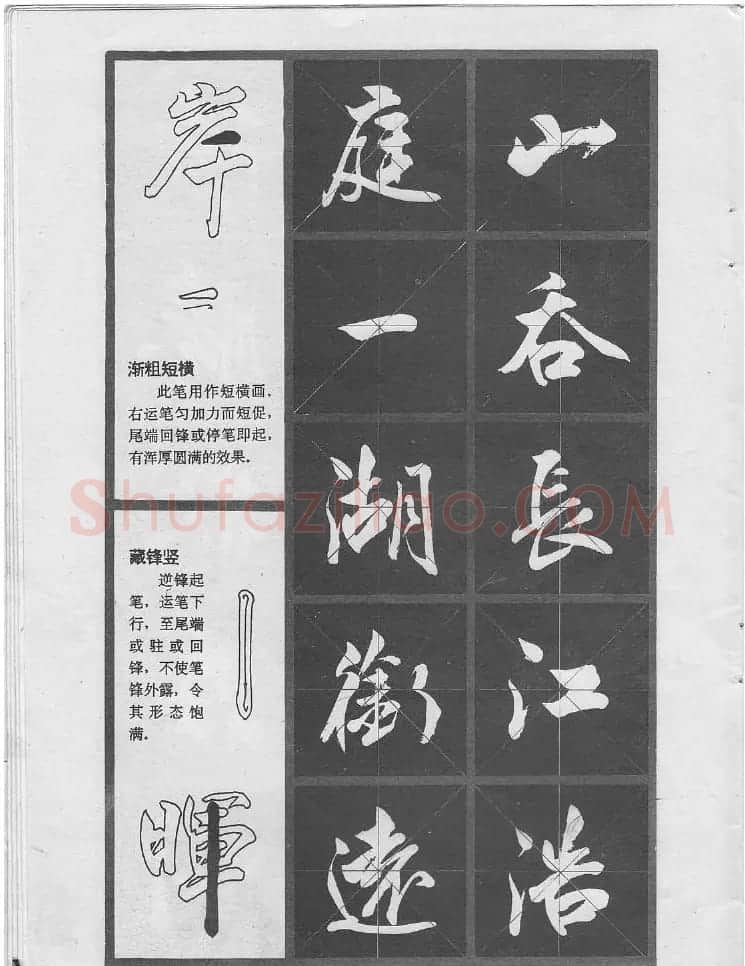 岸
渐粗短横
此笔用作短横画，
右运笔匀加力而短促，
尾端回锋或停笔即起，
有浑厚圆满的效果.
藏锋竖
逆锋起
笔，运笔下
行，至尾端
或驻或回
锋，不使笔
锋外露，令
其形态饱
满.
暉
庭一湖銜遠
山吞長江浩
Shufaziliao.COM